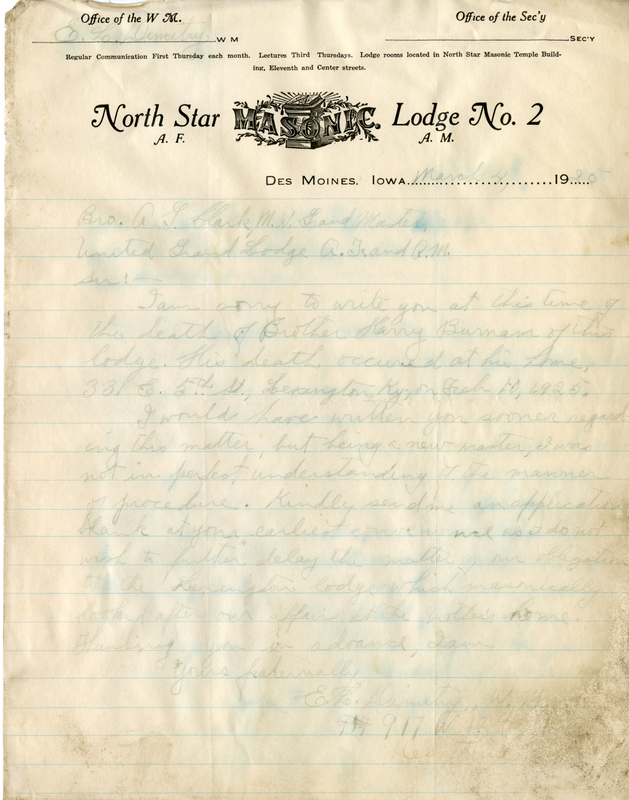 Office of the W M. Office of the Sec'y
W M SEC'Y
Regular Communication First Thursday each month. Lectures Third Thursdays. Lodge rooms located in North Star Masonic Temple Build-
ing, Eleventh and Center streets.
North Star MASONIC. Lodge No. 2
A. F. A. M.
DES MOINES, IOWA March 19
Bro. A. G. Clark, M.W. Grand Master,
United Grand Lodge A. F. and A. M.
Sir:-
I am sorry to write you at this time of
the death of Brother Harry Burnam of this
lodge. His death occured at his home,
331 E. 5th St., Lexington, Ky, on Feb
I would have written you sooner regard-
ing this matter, but being a new master, I was
not in perfect understanding of the manner
of procedure. Kindly send me an application
blank at your earliest convenience as I do not
wish to further delay the matter of our obligation
to the Lexington lodge which masonically
looked after our affair at the home.
Thanking you in advance, I am
Yours fraternally
917